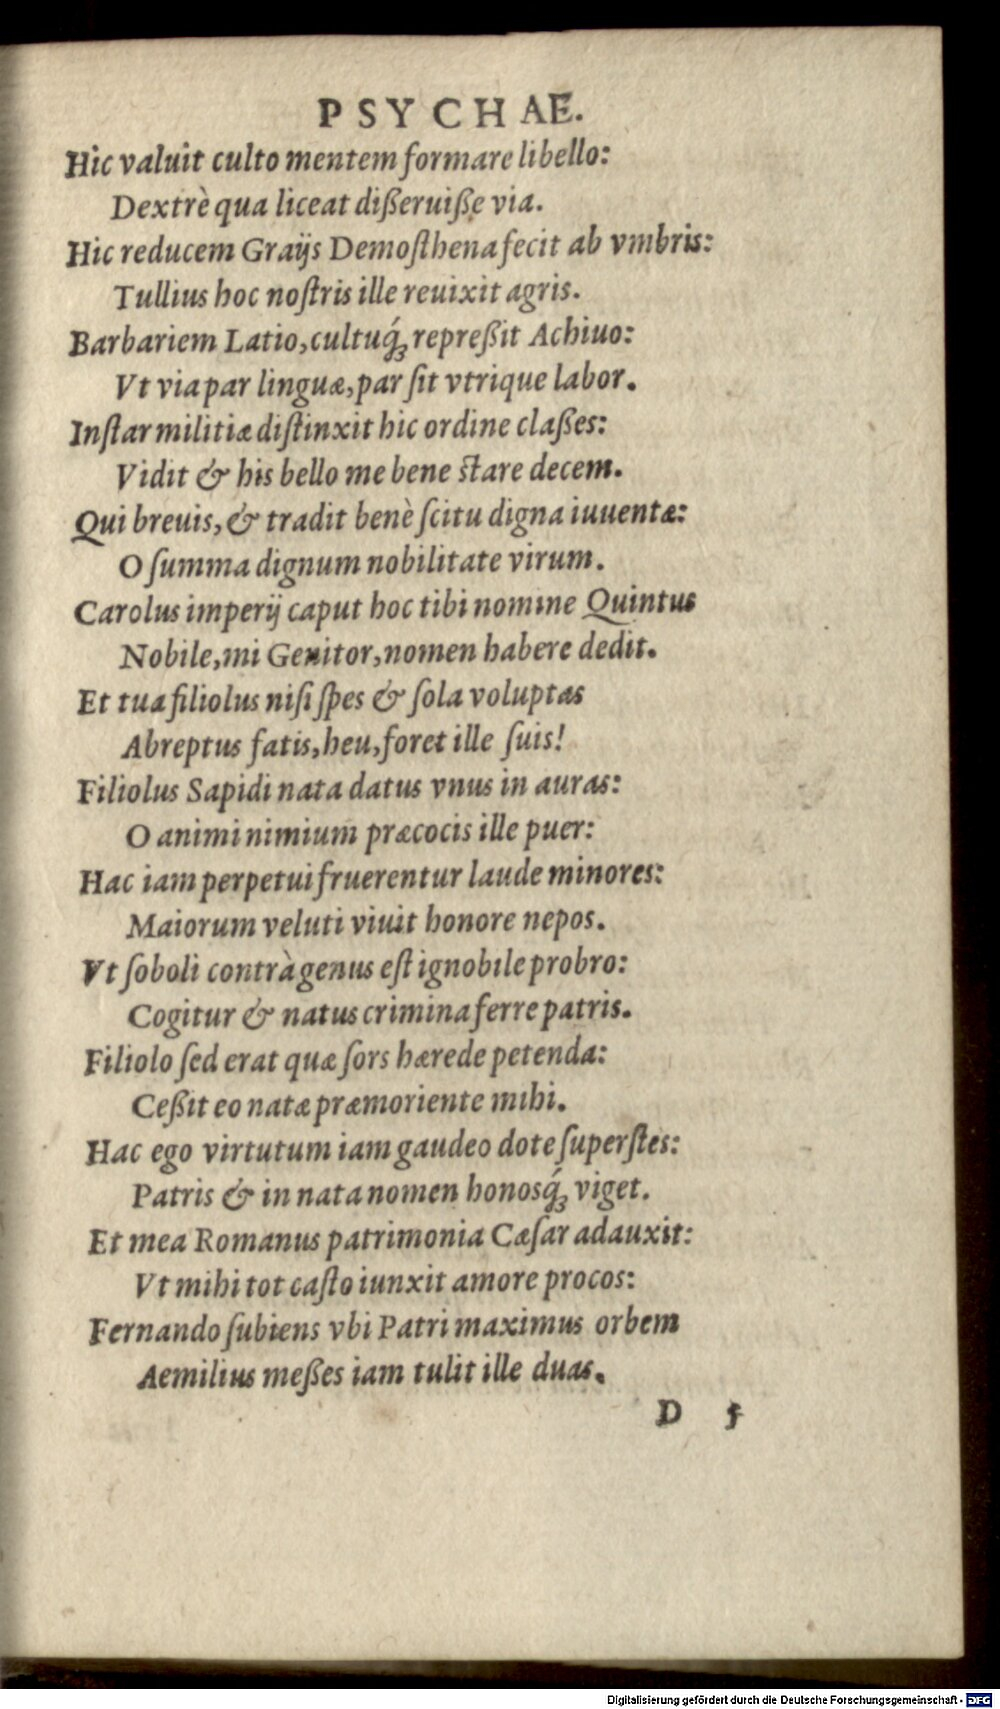 PSYCHAE.
Hic valuit culto mentem formare libello:
Dextrè qua liceat dißeruiße via.
Hic reducem Graijs Demoſthena fecit ab vmbris:
Tullius hoc noſtris ille reuixit agris.
Barbariem Latio, cultuq́ꝫ repreßit Achiuo:
Vt via par linguæ, par ſit vtrique labor.
Inſtar militiæ diſtinxit hic ordine claßes:
Vidit & his bello me bene ſtare decem.
Qui breuis, & tradit benè ſcitu digna iuuentæ:
O ſumma dignum nobilitate virum.
Carolus imperij caput hoc tibi nomine Quintus
Nobile, mi Genitor, nomen habere dedit.
Et tua filiolus niſi ſpes & ſola voluptas
Abreptus fatis, heu, foret ille ſuis!
Filiolus Sapidi nata datus vnus in auras:
O animi nimium præcocis ille puer:
Hac iam perpetui fruerentur laude minores:
Maiorum veluti viuit honore nepos.
Vt ſoboli contrà genus eſt ignobile probro:
Cogitur & natus crimina ferre patris.
Filiolo ſed erat quæ ſors hærede petenda:
Ceßit eo natæ præmoriente mihi.
Hac ego virtutum iam gaudeo dote ſuperſtes:
Patris & in nata nomen honosq́ꝫ viget.
Et mea Romanus patrimonia Cæſar adauxit:
Vt mihi tot caſto iunxit amore procos:
Fernando ſubiens vbi Patri maximus orbem
Aemilius meßes iam tulit ille duas.
D 5
Digitalisierung gefördert durch die Deutsche Forschungsgemeinschaft - DFG